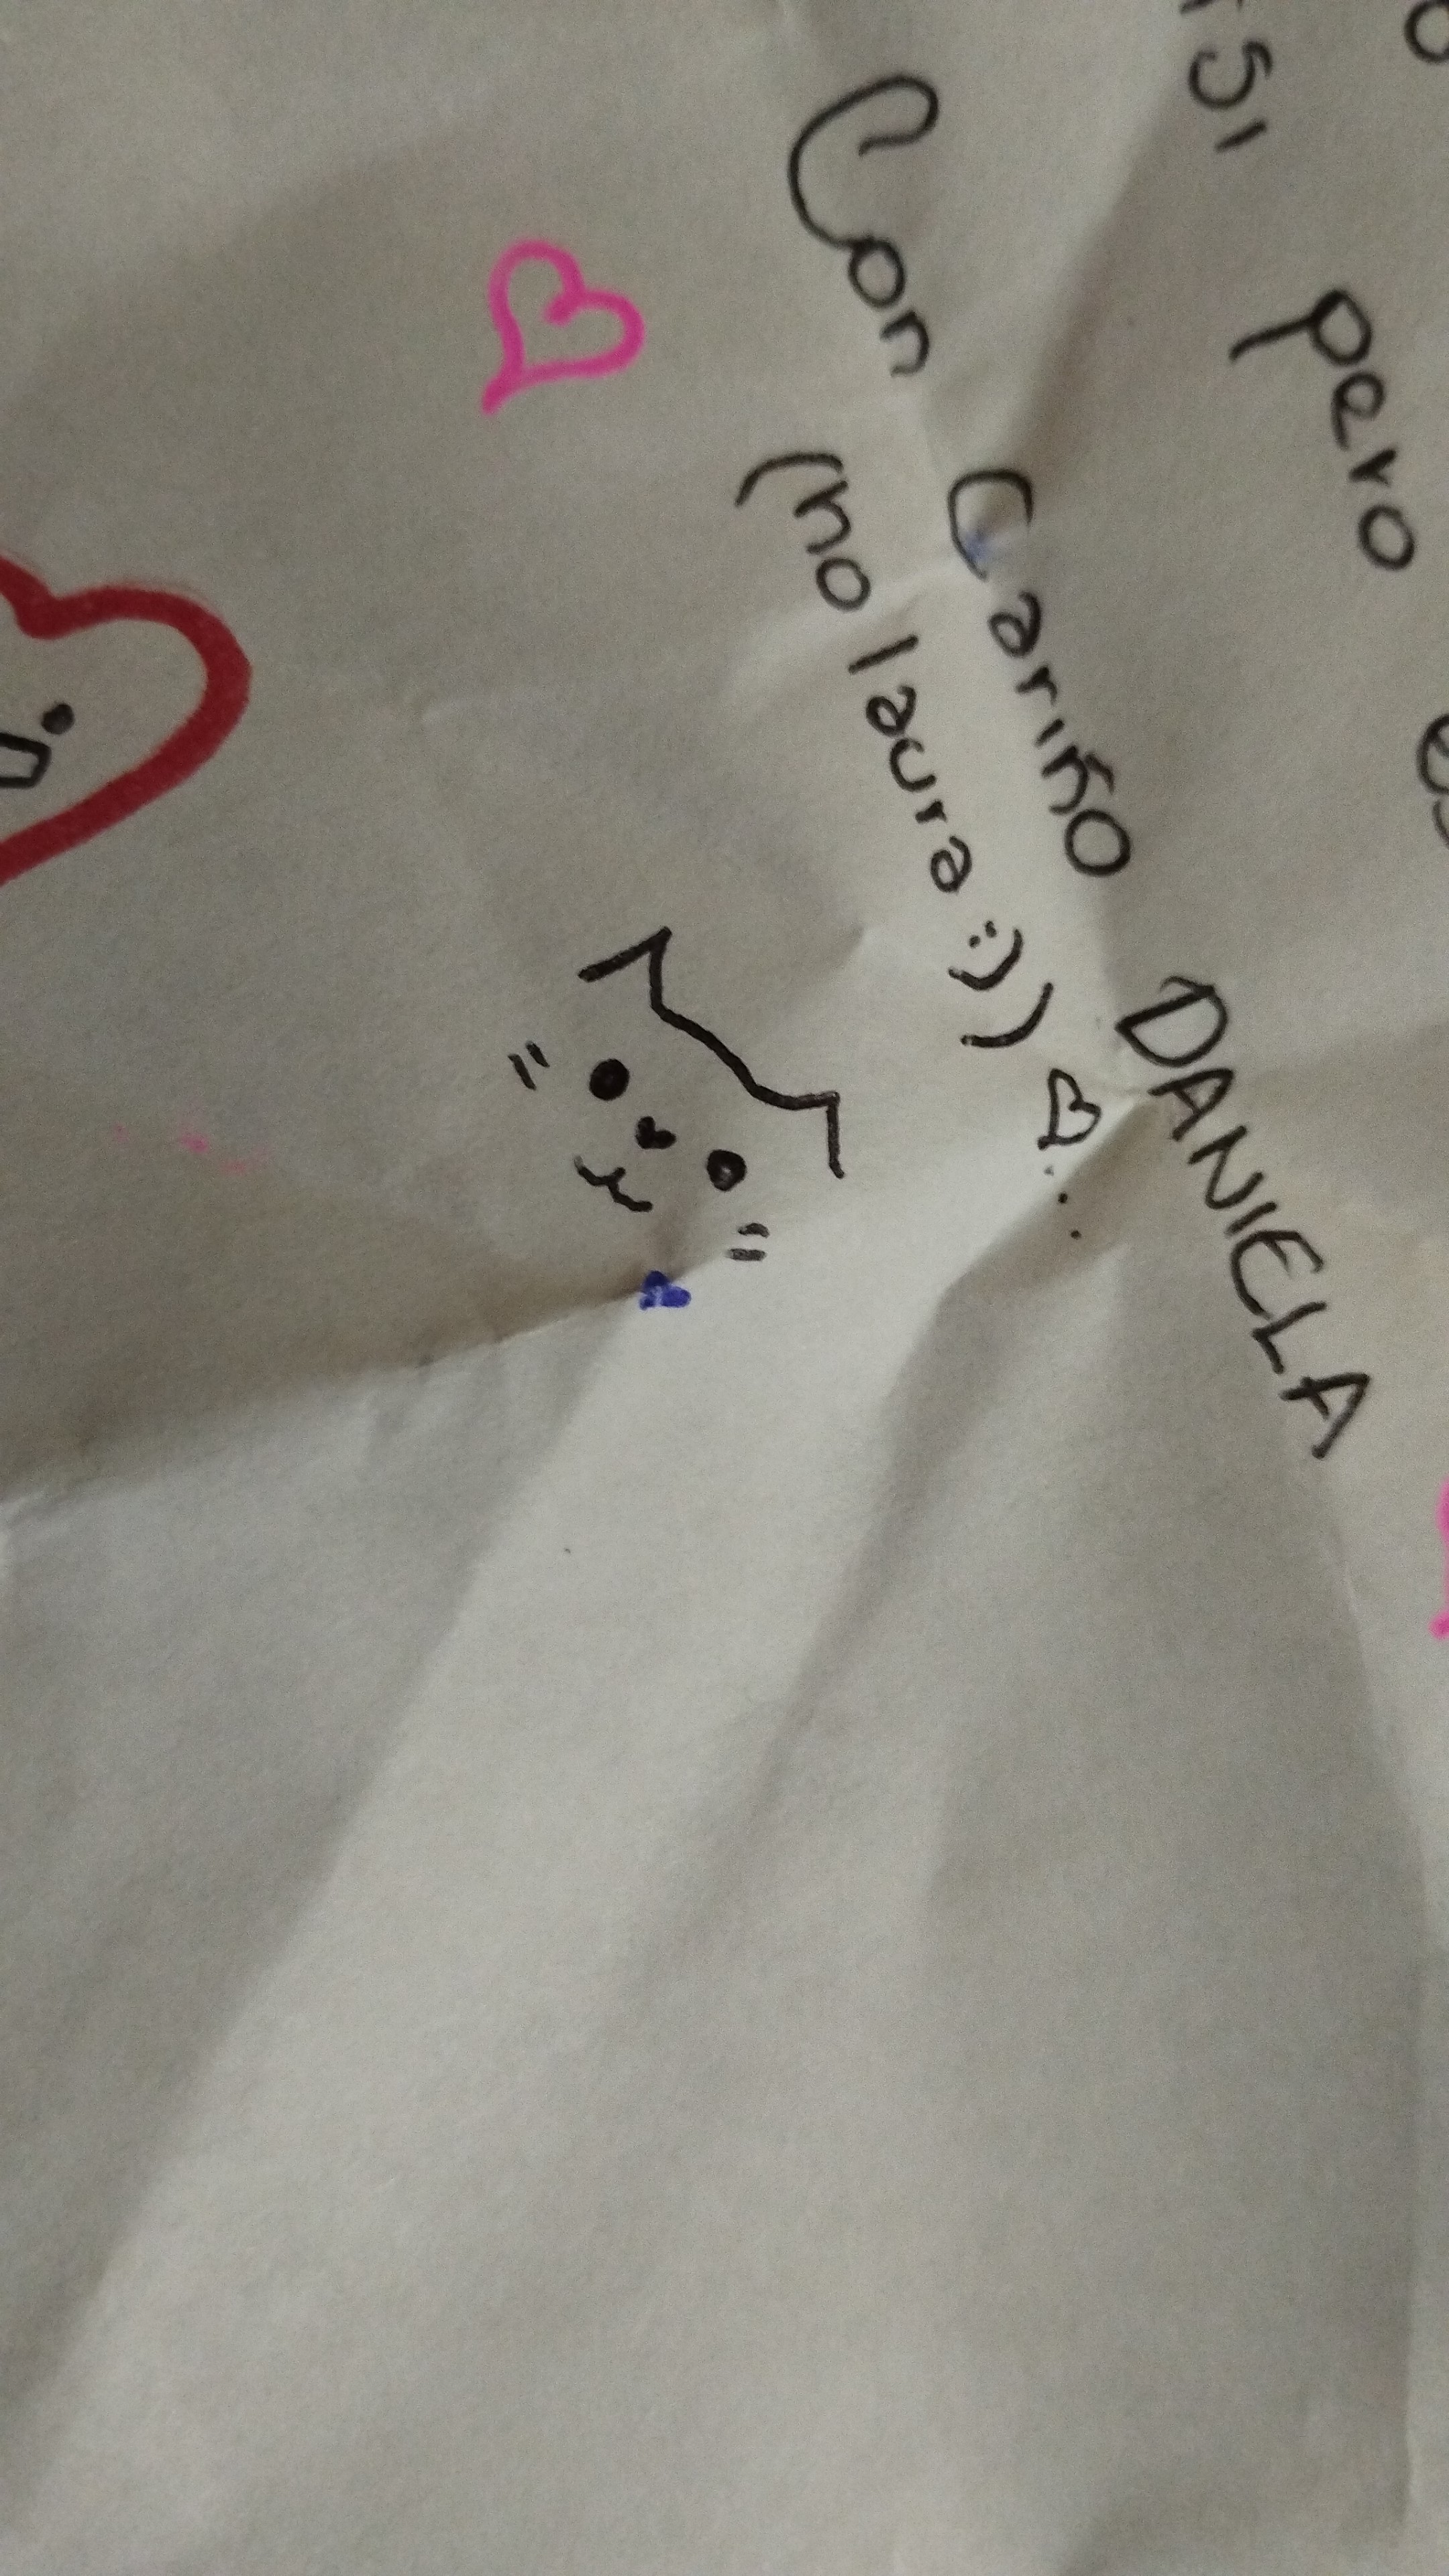 pero
Con Cariño DANIELA
(no laura :))